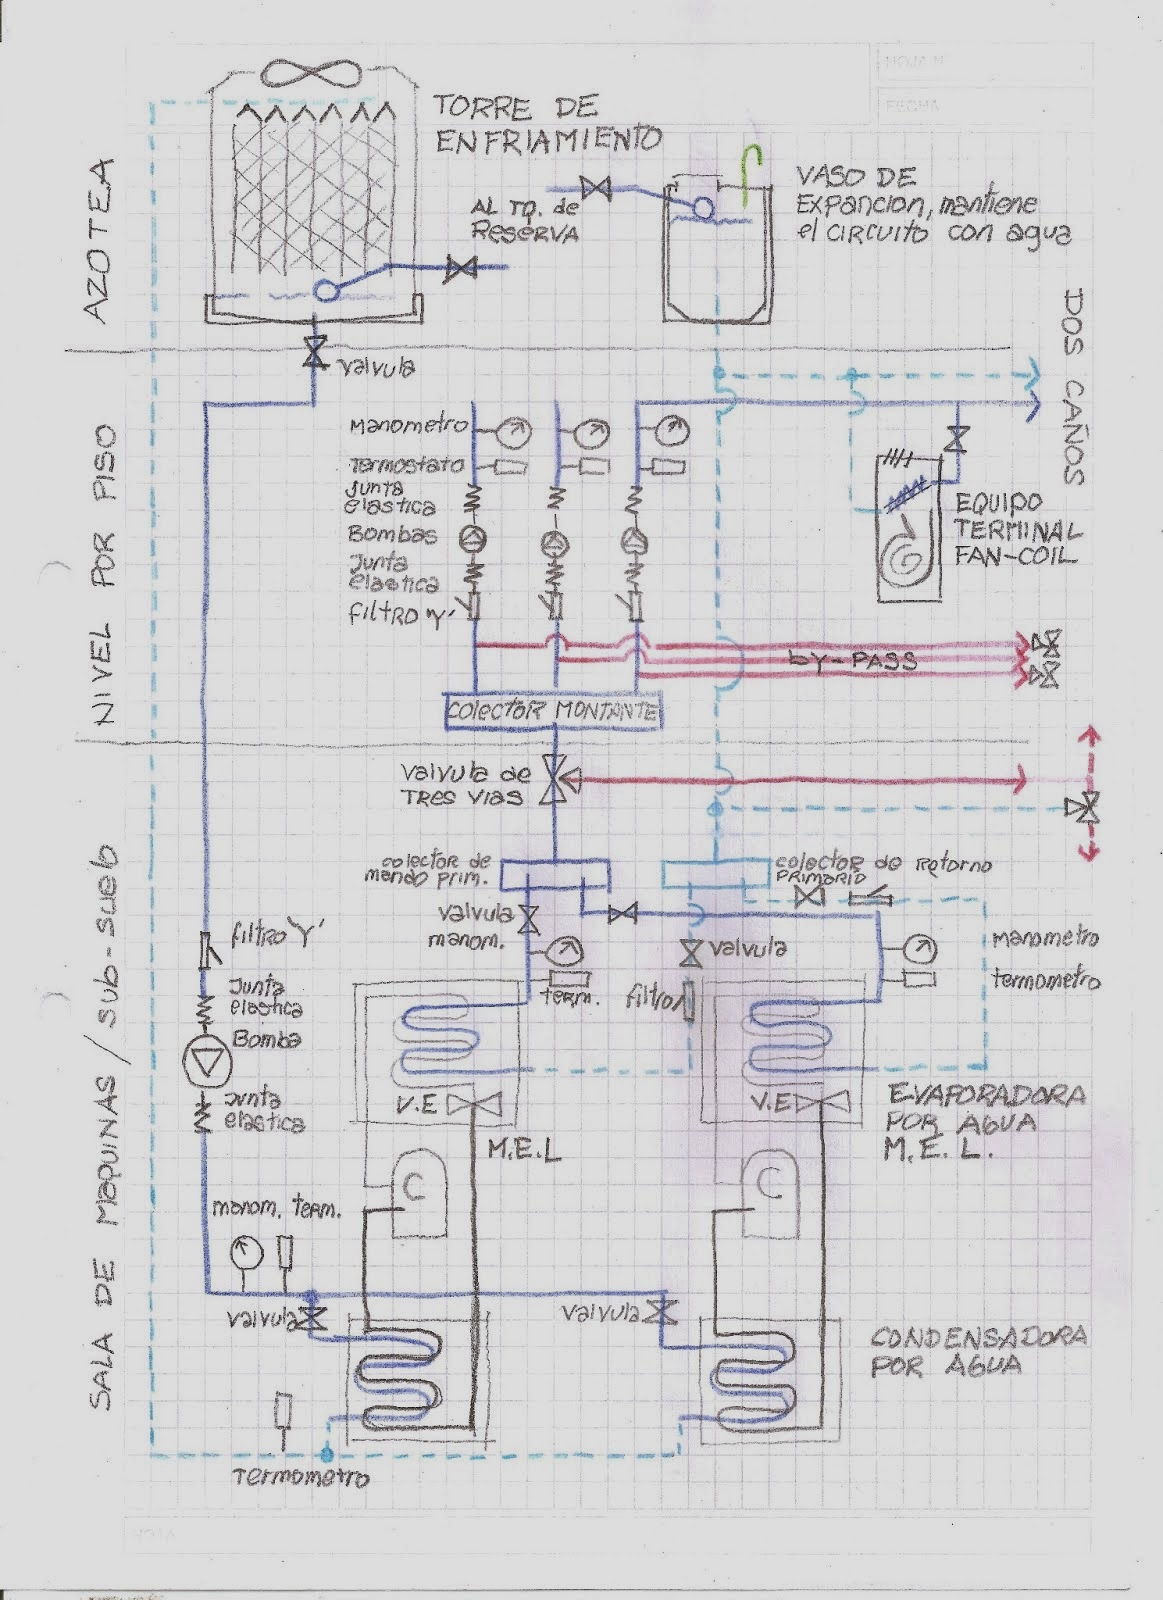 HOJA N
FECHA
TORRE DE
ENFRIAMIENTO
AL TQ. de
RESERVA
VASO DE
EXPANCION, mantiene
el CIRCUITO con agua
AZOTEA
valvula
DOS CAÑOS
NIVEL POR PISO
Manometro
Termostato
Junta
elastica
Bombas
Junta
elastica
FILTRO "Y"
EQUIPO
TERMINAL
FAN-COIL
by-PASS
COLECTOR MONTANTE
valvula de
TRES VIAS
colector de
mando prim.
colector de Retorno
PRIMARIO
valvula
manom.
term.
valvula
filtro
manometro
termometro
SALA DE MAQUINAS / sub-suelo
filtro "Y"
Junta
elastica
Bomba
Junta
elastica
V.E
M.E.L
V.E
EVAPORADORA
POR AGUA
M.E.L.
C
C
manom. term.
valvula
valvula
CONDENSADORA
POR AGUA
Termometro
HOJA